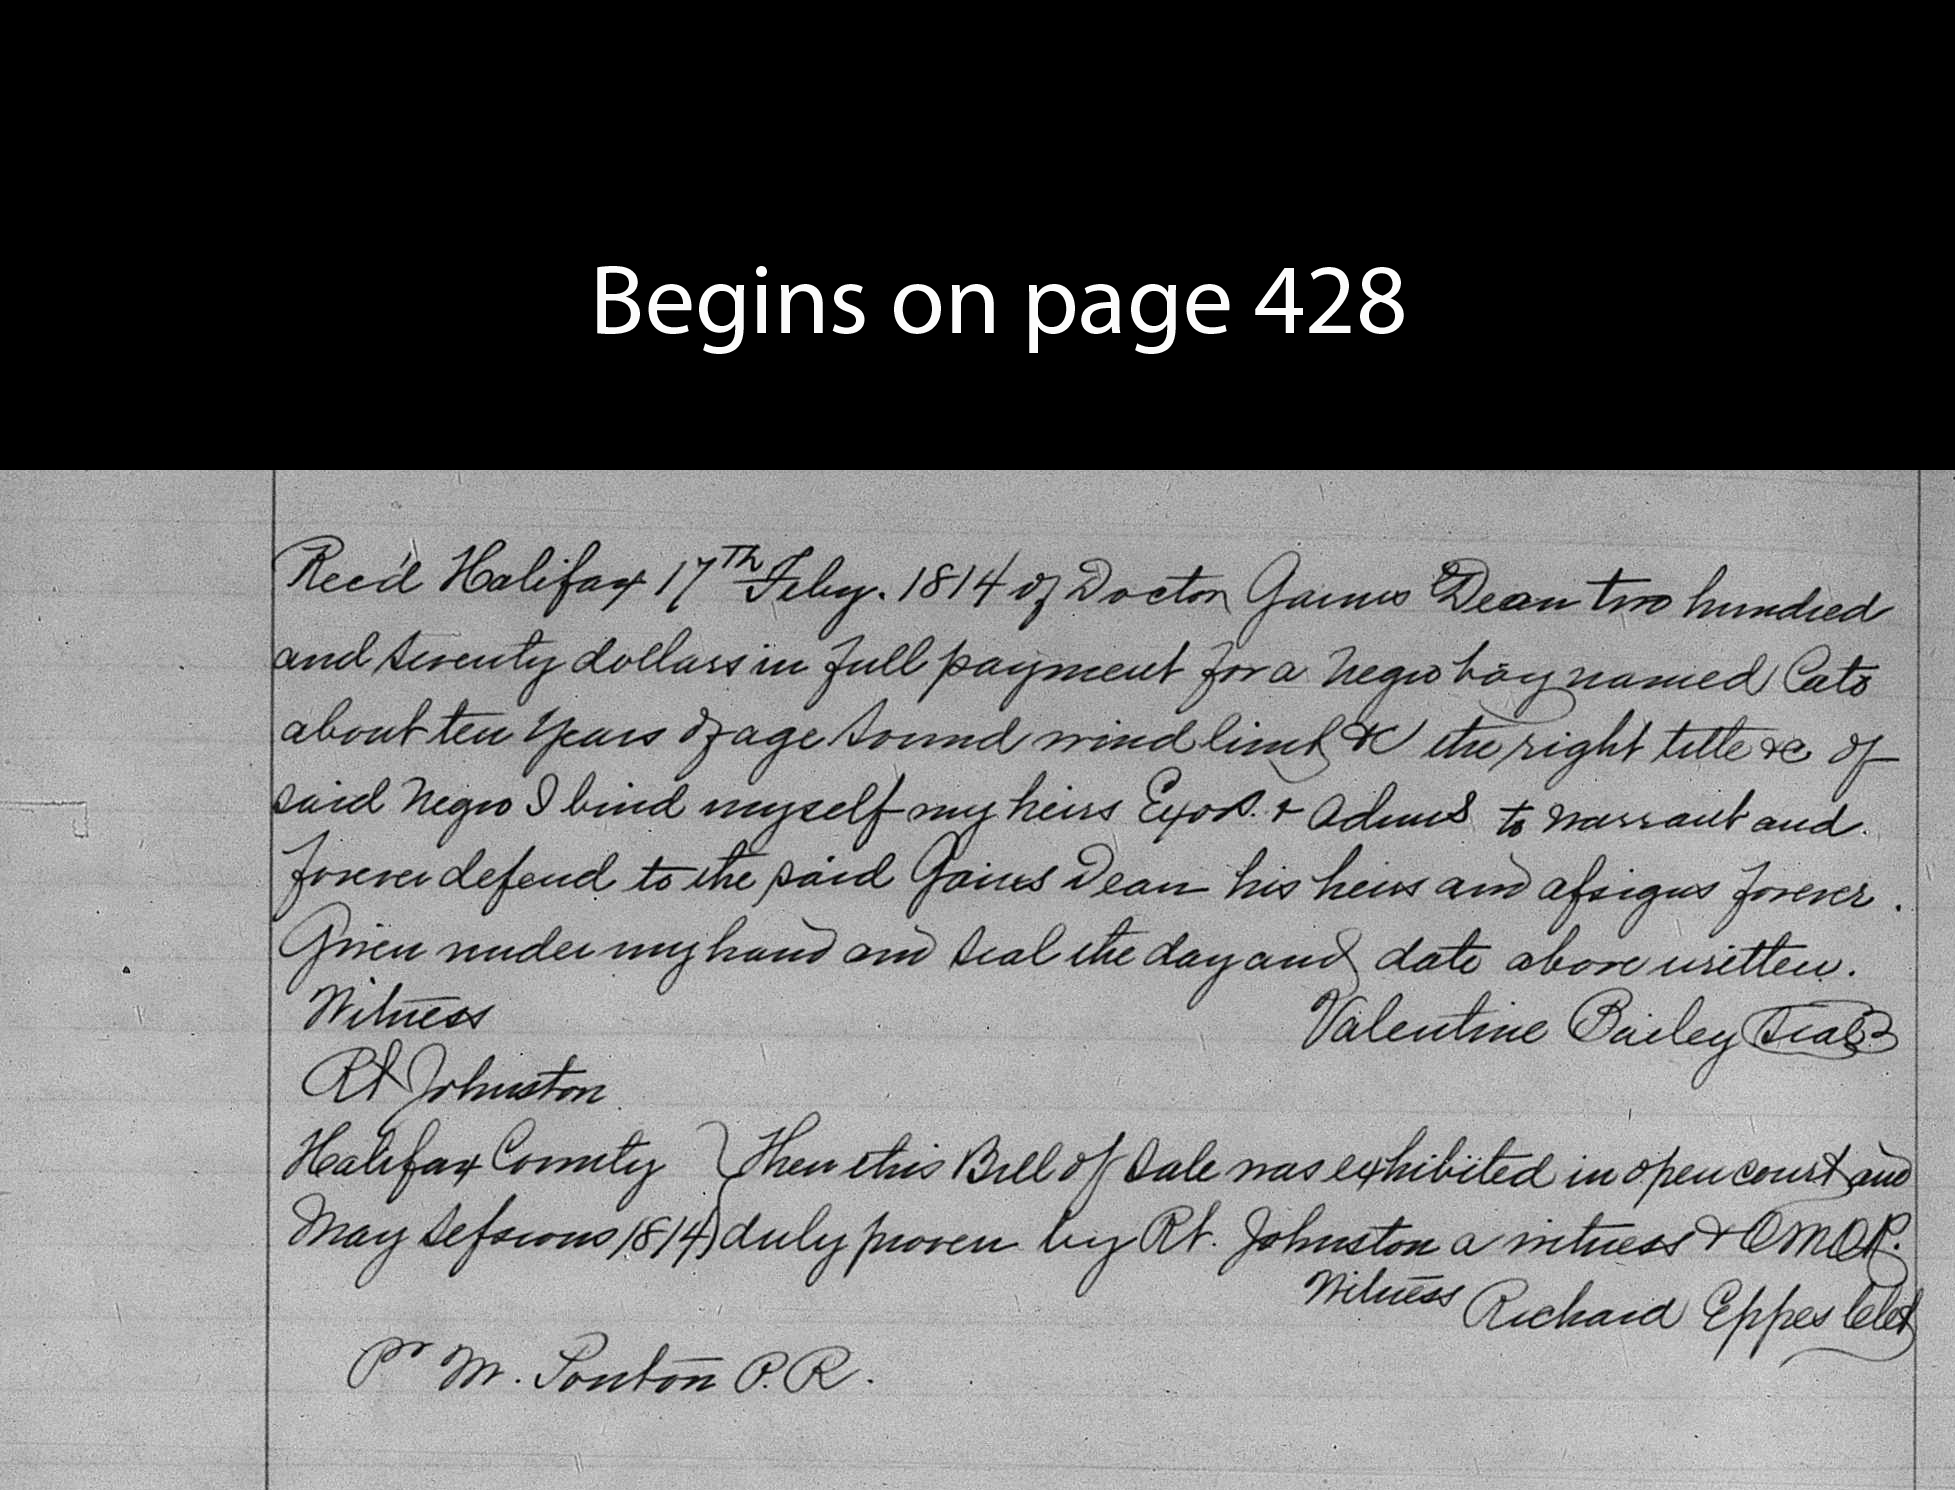 Begins on page 428
Recd Halifax 17th Feby. 1814 of Doctor Gaines Dean two hundred
and seventy dollars in full payment for a negro boy named Cato
about ten years of age sound mind limb &c the right title &c of
said negro I bind myself my heirs Exors. & Admrs to warrant and
forever defend to the said Gaines Dean his heirs and assigns forever.
Given under my hand and seal the day and date above written.
Witness Valentine Bailey Seal
Rt Johnston
Halifax County } Then this Bill of Sale was exhibited in open court and
May Sessions 1814 } duly proven by Rt. Johnston a witness & OMOR.
Witness Richard Eppes Clk
Pr M. P. R.